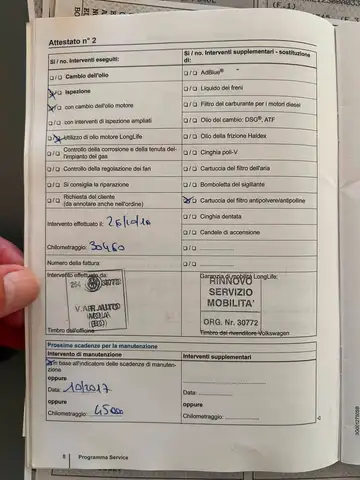 Attestato n° 2
Sì / no. Interventi eseguiti:
Cambio dell'olio
Ispezione
con cambio dell'olio motore
con interventi di ispezione ampliati
Utilizzo di olio motore LongLife
Controllo della corrosione e della tenuta dell'impianto del gas
Controllo della regolazione dei fari
Si consiglia la riparazione
Richiesta del cliente
(da annotare anche nell'ordine)
Intervento effettuato il: 26/10/16
Chilometraggio: 30460
Numero della fattura:
Intervento effettuato da:
264 30772
Timbro dell'officina
Sì / no. Interventi supplementari - sostituzione
di:
AdBlue®
Liquido dei freni
Filtro del carburante per i motori diesel
Olio del cambio: DSG®, ATF
Olio della frizione Haldex
Cinghia poli-V
Cartuccia del filtro dell'aria
Bomboletta del sigillante
Cartuccia del filtro antipolvere/antipolline
Cinghia dentata
Candele di accensione
Garanzia di mobilità LongLife:
RINNOVO
SERVIZIO
MOBILITA'
ORG. Nr. 30772
Timbro del rivenditore Volkswagen
Prossime scadenze per la manutenzione
Intervento di manutenzione
In base all'indicatori delle scadenze di manutenzione
oppure
Data: 10/2017
oppure
Chilometraggio: 45000
Interventi supplementari
Data:
oppure
Chilometraggio:
8 Programma Service